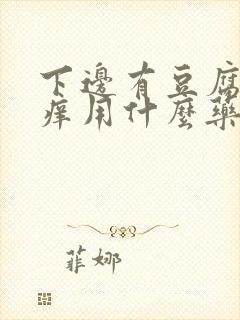 下邊有豆腐
痒用什麼藥
菲娜